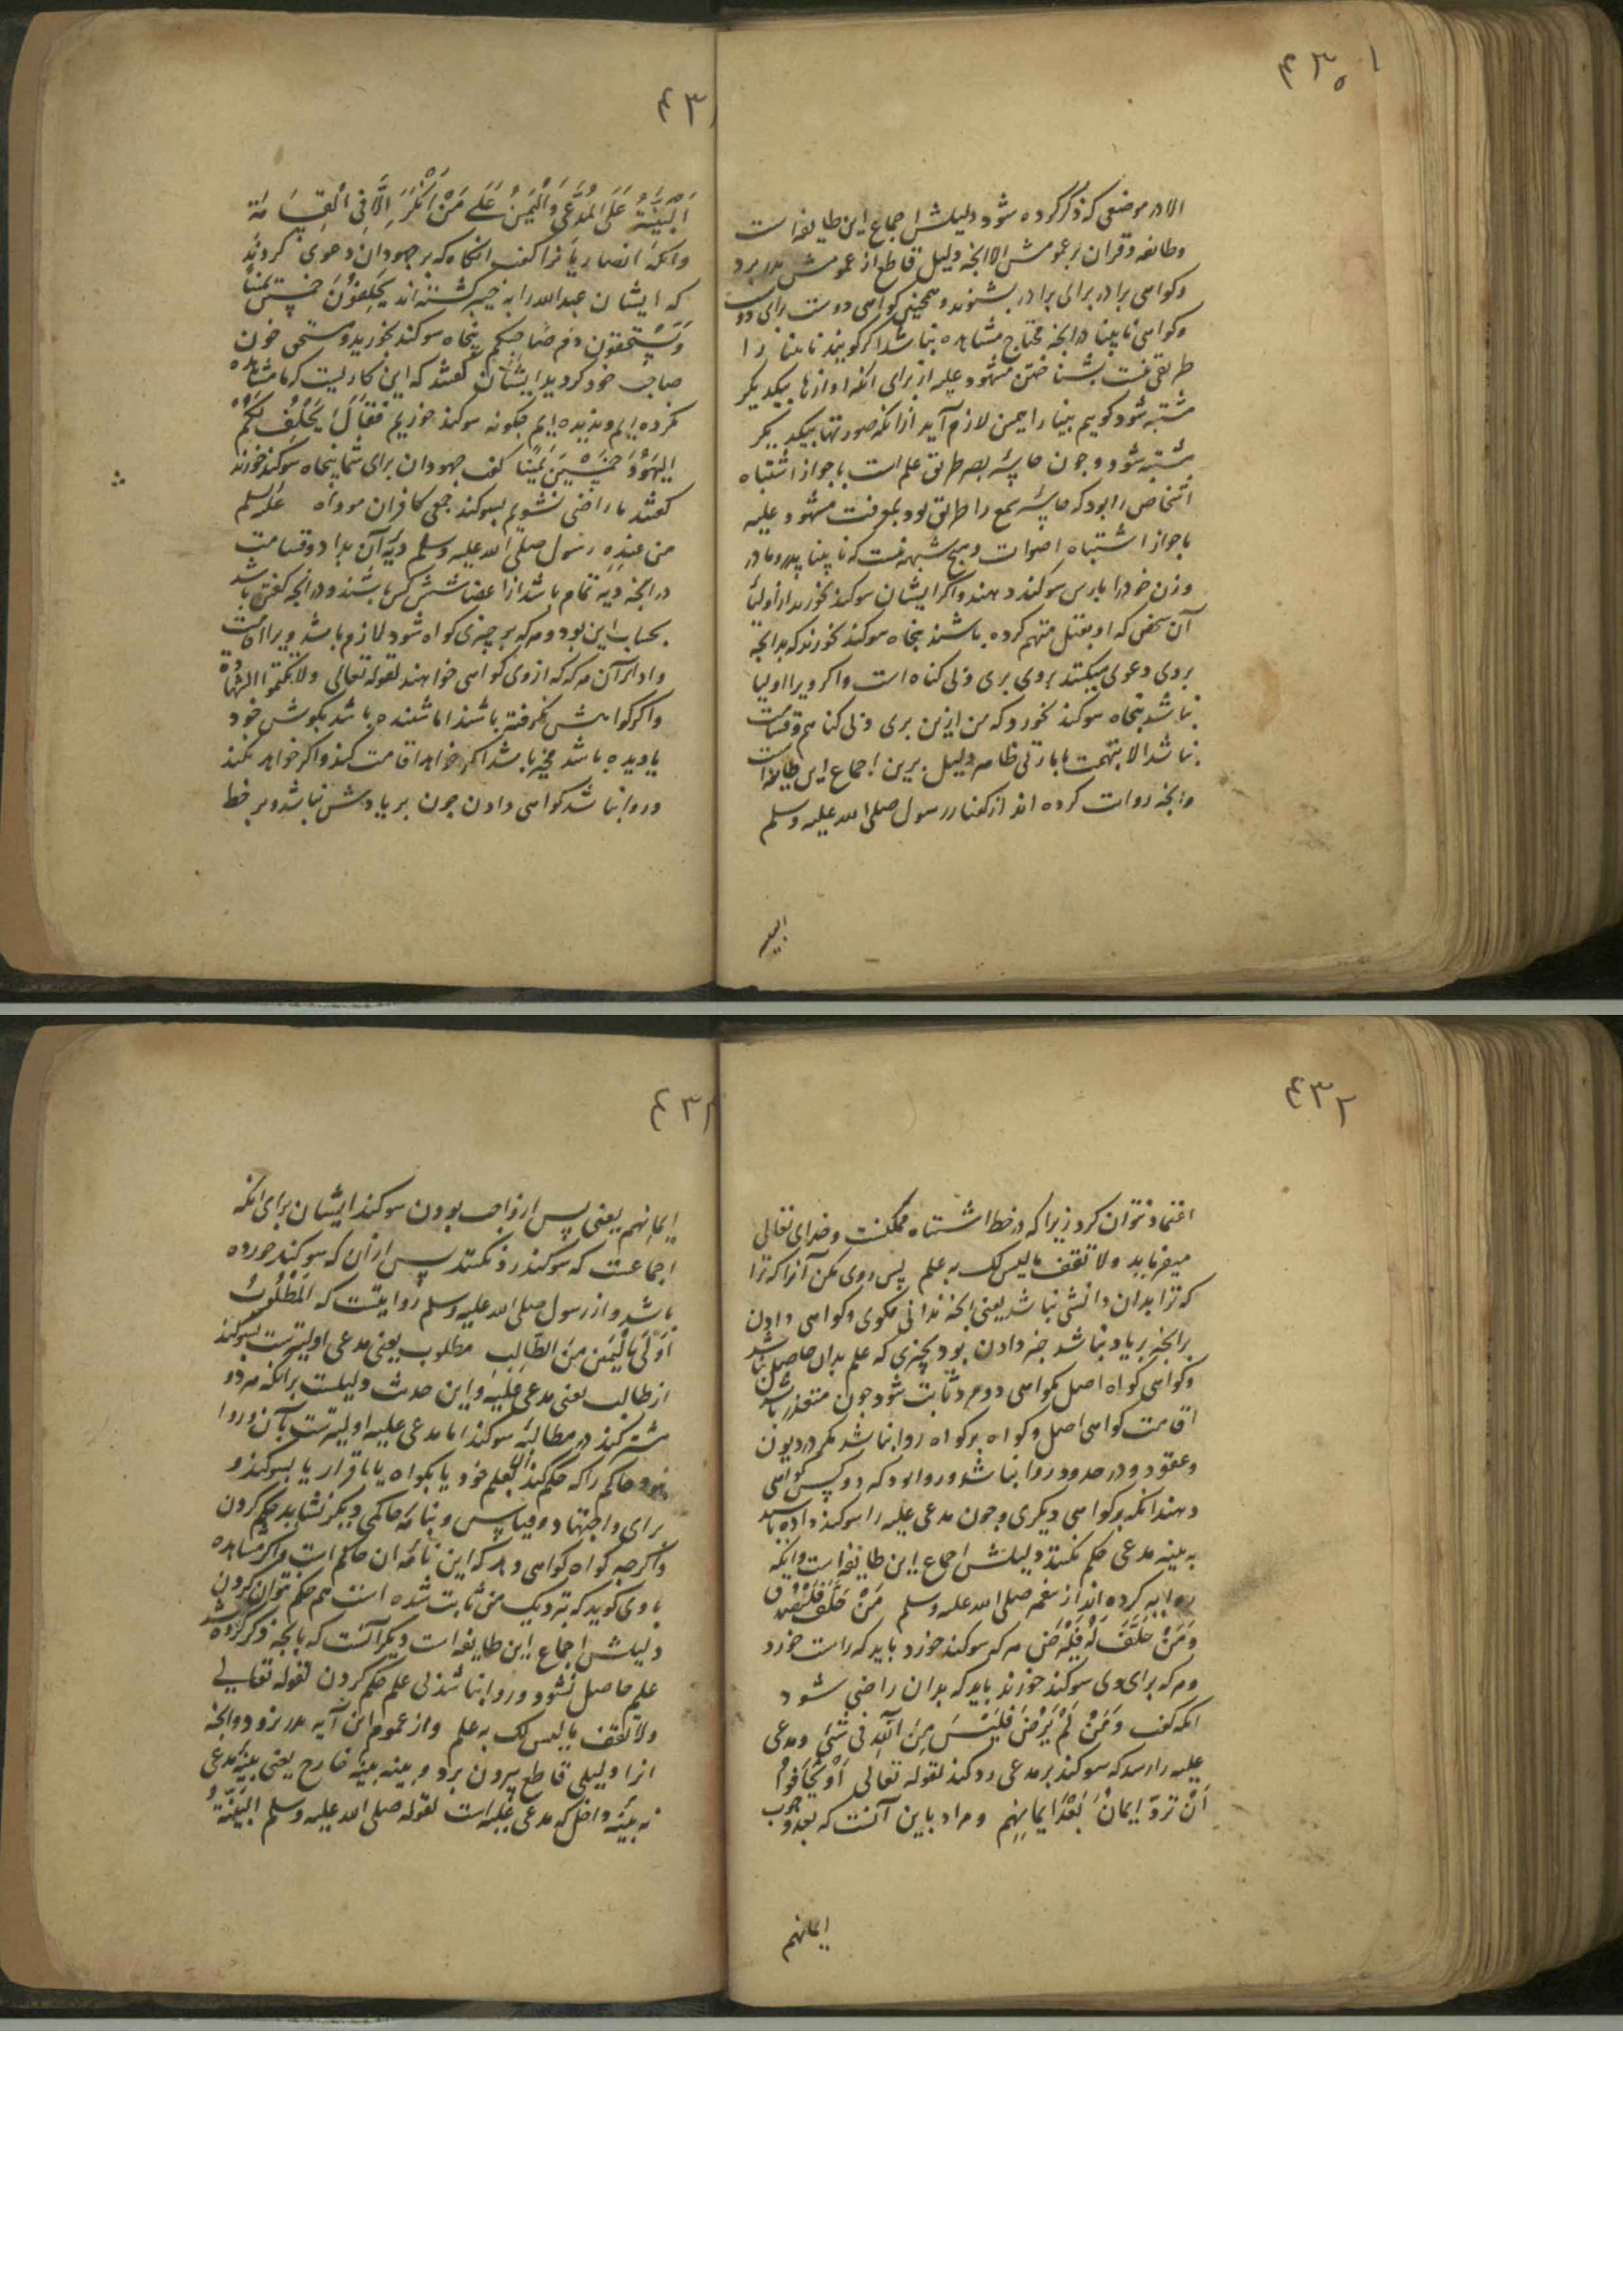 ۴۳۰
الا در موضعی که ذکر کرده شود دلیلش اجماع این طایفه است
وطائفه وقران بر عمومش الا انچه دلیل قاطع از عمومش بدر برد
وکواهی برادر برای برادر بشنوند وهمچنین کواهی دوست برای دوست
وکواهی نابینا در انچه محتاج مشاهده نباشد اکر کویند نابینا را
طریقی نیست بشناختن مشهود علیه از برای انکه اوازها بیکدیکر
مشتبه شود کوییم بینا را همین لازم آید از انکه صورتها بیکدیکر
مشتبه شود وچون حاسّه بصر طریق علم است با جواز اشتباه
اشخاص روا بود که حاسّه سمع را طریق بود بمعرفت مشهود علیه
با جواز اشتباه اصوات وهیچ شبهه نیست که نابینا پدر ومادر
وزن خود را
آن شخص که او بقتل متهم کرده باشند پنجاه سوکند خورند که بدانچه
بروی دعوی میکنند بروی بری وبی کناه است واکر ویرا اولیا
نباشد پنجاه سوکند خورد که من ازین بری وبی کناهم وقسامت
نباشد الا بتهمت با امارتی ظاهر دلیل برین اجماع این طایفه است
وانچه روایت کرده اند از کفتار رسول صلی الله علیه وسلم
البینه
۴۳۱
اَلْبَیِّنَةُ عَلَی الْمُدَّعِی وَالْیَمِینُ عَلَی مَنْ اَنْکَرَ اِلَّا فِی الْقِسَامَة
وانکه انصاریانرا کفت انکاه که بر جهودان دعوی کردند
که ایشان عبدالله را به خیبر کشته اند یَحْلِفُونَ خَمْسِینَ یَمِیناً
وَیَسْتَحِقُّونَ دَمَ صَاحِبِکُم پنجاه سوکند بخورید ومستحق خون
صاحب خود کردید ایشان کفتند که این کاریست که ما مشاهده
نکرده ایم وندیده ایم چکونه سوکند خوریم فَقَالَ یَحْلِفُ لَکُمْ
الیَهُودُ خَمْسِینَ یَمِینًا کفت جهودان برای شما پنجاه سوکند خورند
کفتند ما راضی نشویم بسوکند جمعی کافران
من عِندِهِ رسول صلی الله علیه وسلم دیهٔ آن بداد وقسامت
در انچه دیه تمام باشد از اعضا شش کس باشند ودر انچه کمتر باشد
بحساب این بود وهر که بر چیزی کواه شود لازم باشد ویرا اقامت
وادای آن هر که که از وی کواهی خواهند لقوله تعالی ولا تکتموا الشهادة
واکر کواهش نکرفته باشند اما شنیده باشد بکوش خود
یا دیده باشد مخیر باشد اکر خواهد اقامت کند واکر خواهد نکند
وروا نباشد کواهی دادن چون بر یادش نباشد وبر خط
۴۳۲
اعتماد نتوان کرد زیرا که در خط اشتباه ممکنست وخدای تعالی
میفرماید ولا تقف ما لیس لک به علم پس روی مکن آنرا که ترا
که ترا بدان دانشی نباشد یعنی انچه ندانی مکوی وکواهی دادن
بر انچه بر یاد نباشد خبر دادن بود بچیزی که علم بدان حاصل نباشد
وکواهی کواه اصل بکواهی دوم د ثابت شود چون متعذر باشد
اقامت کواهی اصل وکواه بر کواه روا نباشد مکر در دیون
وعقود ودر حدود روا نباشد وروا بود که دو کس کواهی
دهند انکه بر کواهی دیکری وچون مدعی علیه را سوکند داده باشد
به بینه مدعی حکم نکنند دلیلش اجماع این طایفه است وانکه
روایه کرده اند از پیغمبر صلی الله علیه وسلم مَنْ حَلَفَ فَلْیَصْدُق
وَمَنْ حَلَفَ لَهُ فَلْیَرْضَ هر که سوکند خورد باید که راست خورد
وهر که برای وی سوکند خورند باید که بدان راضی شود
انکه کفت وَمَنْ لَمْ یَرْضَ فَلَیْسَ مِنَ اللهِ فی شَیْءٍ ومدعی
علیه را رسد که سوکند بر مدعی رد کند لقوله تعالی اَوْ یَخَافُوا
اَنْ تُرَدَّ اَیمانٌ بَعْدَ اَیمانِهِم ومراد باین آنست که بعد وجوب
ایمانهم
۴۳۳
ایمانهم یعنی پس از واجب بودن سوکند ایشان برای انکه
اجماعست که سوکند رد نکنند پس از آن که سوکند خورده
باشد واز رسول صلی الله علیه وسلم روایتست که اَلْمَطْلُوبُ
اَوْلَی بِالْیَمِینِ مِنَ الطَّالِبِ مطلوب یعنی مدعی اولیترست بسوکند
از طالب یعنی مدعی علیه واین حدیث دلیلست بر انکه هر دو
مشترکند در مطالبهٔ سوکند اما مدعی علیه اولیترست بآن وروا
نبود حاکم را که حکم کند الا بعلم خود یا بکواه یا باقرار یا بسوکند و
برای واجتهاد وقیاس وبنامه حاکمی دیکر نشاید حکم کردن
واکرچه کواه کواهی دهد که این نامهٔ آن حاکم است واکر مشاهده
با وی کوید که نزدیک من ثابت شده است هم حکم نتوان کردن
دلیلش اجماع این طایفه است دیکر آنست که بانچه ذکر کرده شد
علم حاصل نشود وروا نباشد بی علم حکم کردن لقوله تعالی
ولا تقف ما لیس لک به علم واز عموم این آیه بدر نرود الا انچه
انرا دلیلی قاطع بیرون برد وبینه بینه خارج یعنی بینه مدعی
نه بینه داخل که مدعی علیه است لقوله صلی الله علیه وسلم البَیِّنَةُ